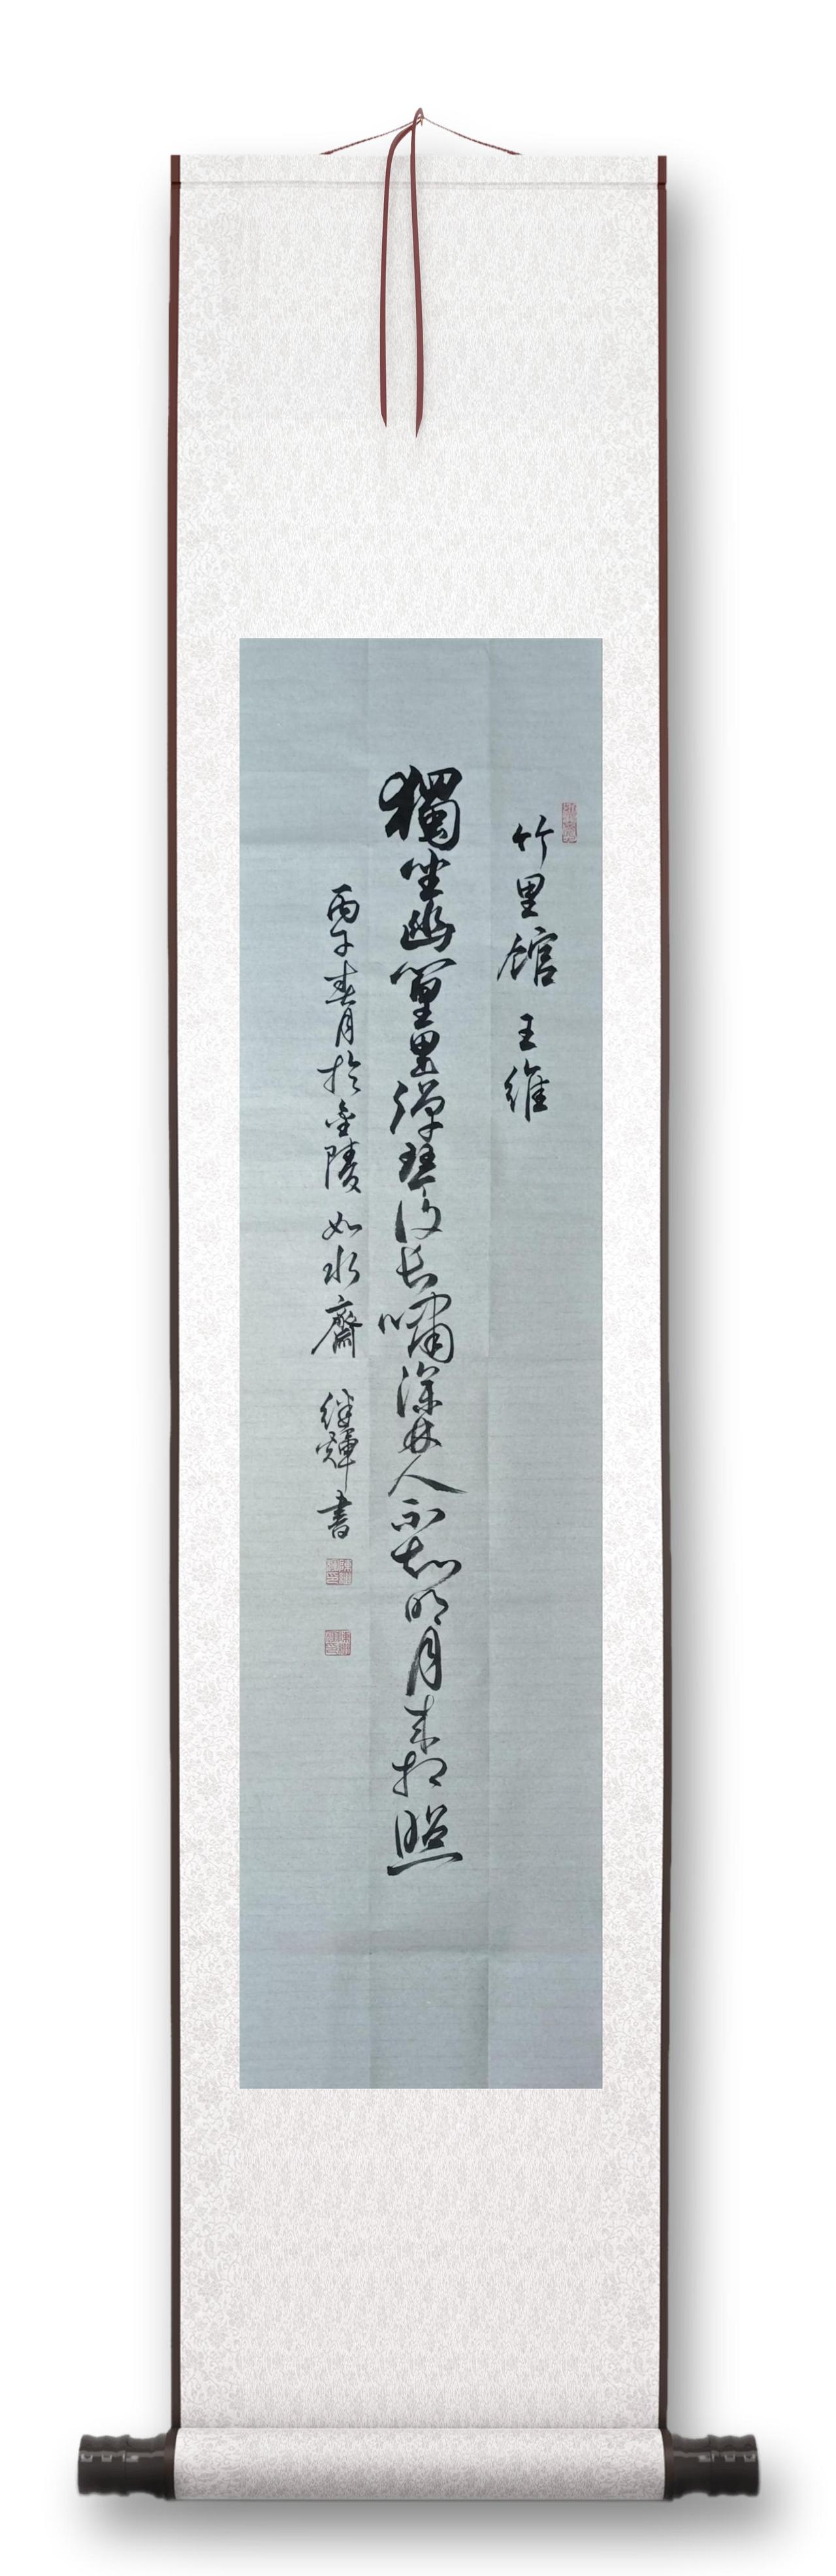 竹里馆 王维
獨坐幽篁里彈琴復长嘯深林人不知明月来相照
丙子春月於金陵如水齋 继輝書